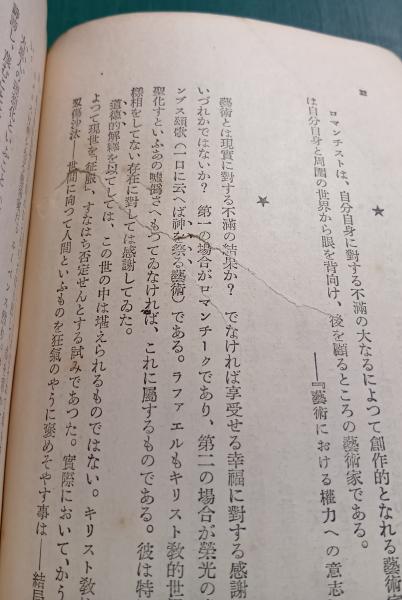 22
★
ロマンチストは、自分自身に對する不滿の大なるによつて創作的となれる藝術家
は自分自身と周圍の世界から眼を背向け、後を顧るところの藝術家である。
――『藝術における權力への意志
★
藝術とは現實に對する不滿の結果か? でなければ享受せる幸福に對する感謝
いづれかではないか? 第一の場合がロマンチークであり、第二の場合が榮光の
ンブス頌歌(一口に云へば神を祭る藝術)である。ラファエルもキリスト敎的世
聖化すといふあの噓僞さへもつてゐなければ、これに屬するものである。彼は特
樣相をしてない存在に對しては感謝してゐた。
道德的解釋を以てしては、この世の中は堪えられるものではない。キリスト敎
よつて現世を「征服」、すなはち否定せんとする試みであつた。實際においてかう
世間に向つて人間といふものを狂氣のやうに褒めそやす事は――結局